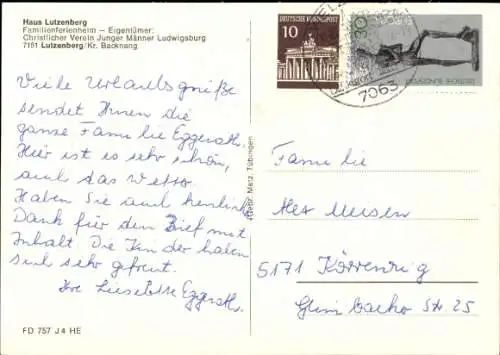 Haus Lutzenberg
Familienferienheim — Eigentümer:
Christlicher Verein Junger Männer Ludwigsburg
7151 Lutzenberg/Kr. Backnang
DEUTSCHE BUNDESPOST
10
30
7063
Viele Urlaubsgrüße
sendet Ihnen die
ganze Familie Eggerath.
Hier ist es sehr schön,
auch das Wetter
Haben Sie auch herzlich
Dank für den Brief mit
Inhalt. Die Kinder haben
sich sehr gefreut.
Ihre Lieselotte Eggerath.
Gebr. Metz, Tübingen
Familie
5171 Körrenzig
Glimbacher Str 25
FD 757 J 4 HE